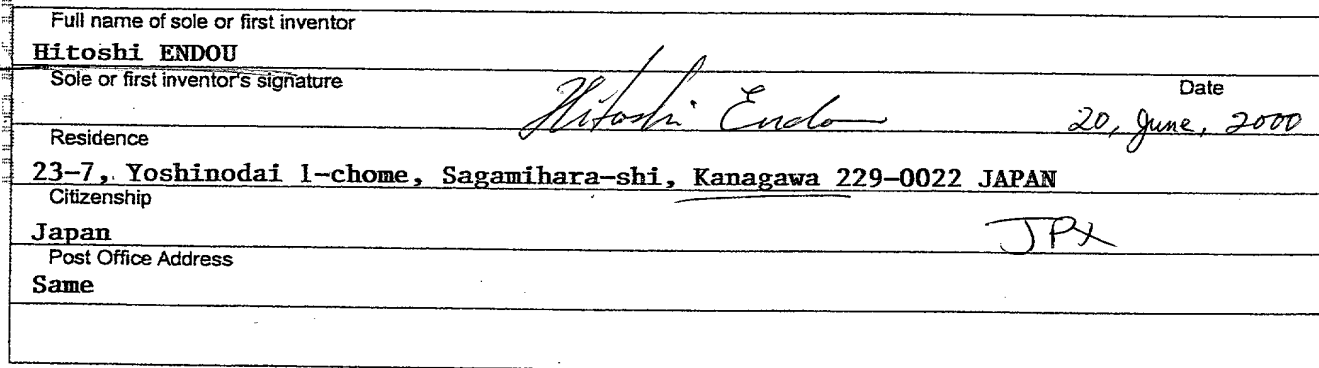 Full name of sole or first inventor
Hitoshi ENDOU
Sole or first inventor's signature
Date
Hitoshi Endou
20, June, 2000
Residence
23-7, Yoshinodai 1-chome, Sagamihara-shi, Kanagawa 229-0022 JAPAN
Citizenship
Japan
JPX
Post Office Address
Same